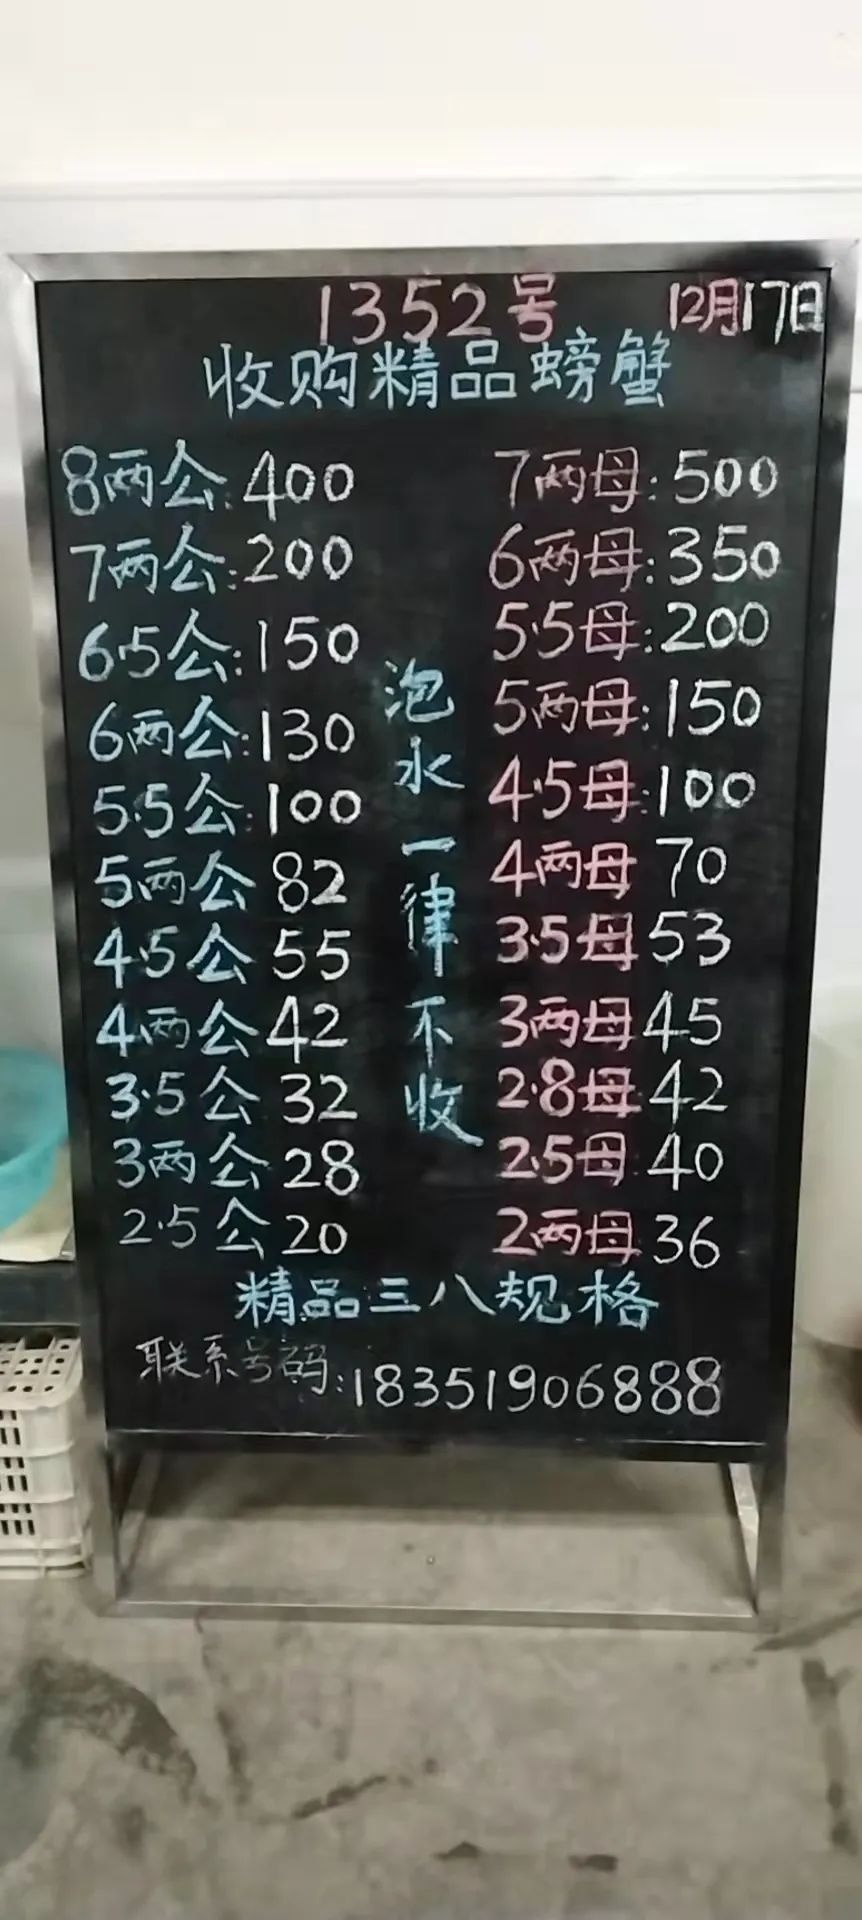 1352号 12月17日
收购精品螃蟹
8两公:400 7两母:500
7两公:200 6两母:350
6.5公:150 5.5母:200
6两公:130 5两母:150
5.5公:100 4.5母:100
5两公 82 4两母 70
4.5公 55 3.5母 53
4两公 42 3两母 45
3.5公 32 2.8母 42
3两公 28 2.5母 40
2.5公 20 2两母 36
泡水一律不收
精品三八规格
联系号码:18351906888